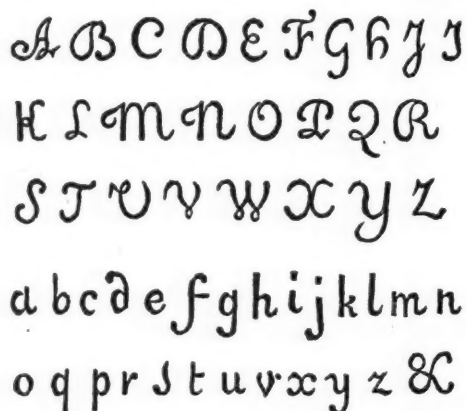 A B C D E F G H J I
K L M N O P Q R
S T U V W X Y Z
a b c d e f g h i j k l m n
o q p r s t u v x y z &